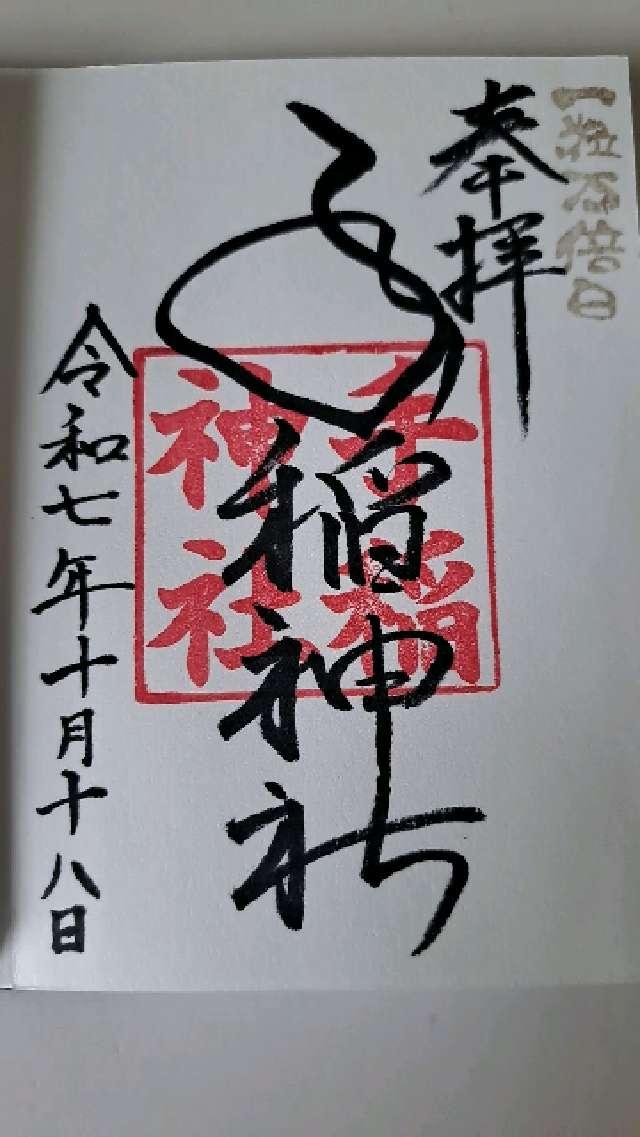 一粒万倍日
奉拝
手稲神社
手稲
神社
令和七年十月十八日